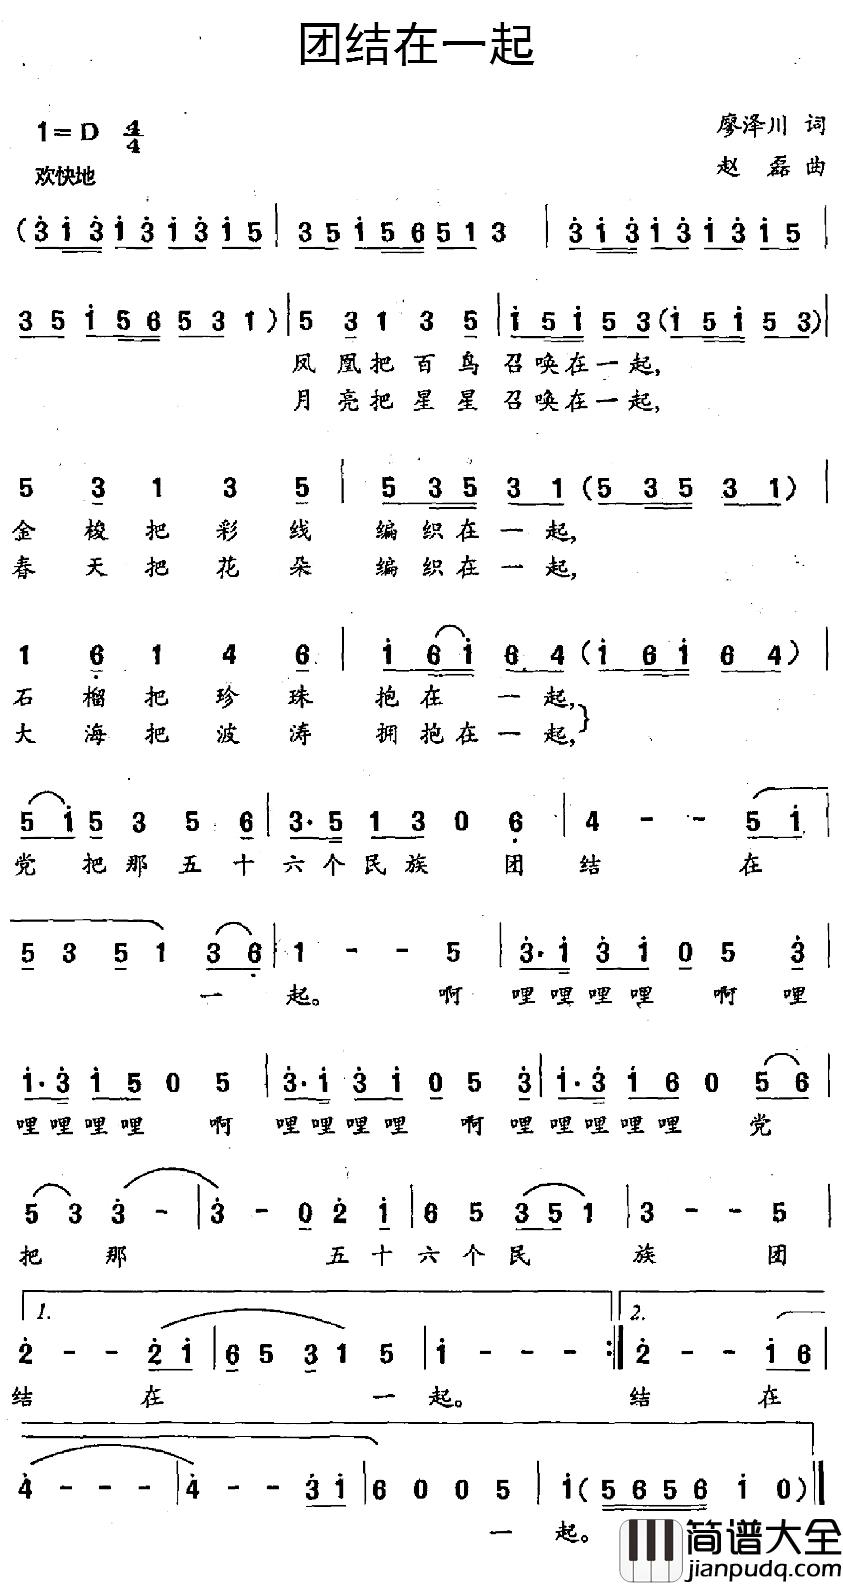 团结在一起
1=D 4/4
廖泽川 词
欢快地
赵磊 曲
(3̇ i 3̇ i 3̇ i 3̇ i 5 | 3 5 i 5 6 5 1 3 | 3̇ i 3̇ i 3̇ i 3̇ i 5 |
3 5 i 5 6 5 3 1 ) | 5 3 1 3 5 | i 5 i 5 3 ( i 5 i 5 3) |
凤凰把百鸟召唤在一起,
月亮把星星召唤在一起,
5 3 1 3 5 | 5 3 5 3 1 ( 5 3 5 3 1 ) |
金梭把彩线 编织在一起,
春天把花朵 编织在一起,
1 6̣ 1 4 6 | i 6 i 6 4 ( i 6 i 6 4 ) |
石榴把珍珠 抱在一起,
大海把波涛 拥抱在一起,}
5 i 5 3 5 6 | 3· 5 1 3 0 6̣ | 4 - - 5 i |
党 把那五十六个民族 团 结 在
5 3 5 1 3 6̣ | 1 - - 5 | 3̇· i 3̇ i 0 5 3̇ |
一 起。 啊 哩哩哩哩 啊 哩
i· 3̇ i 5 0 5 | 3̇· i 3̇ i 0 5 3̇ | i· 3̇ i 6 0 5 6 |
哩哩哩哩 啊 哩哩哩哩 啊哩哩哩哩哩 党
5 3 3̇ - | 3̇ - 0 2̇ i | 6 5 3 5 1 | 3 - - 5 |
把 那 五十六个民 族 团
1. 2.
2̇ - - 2̇ i | 6 5 3 1 5 | i - - - :| 2̇ - - i 6 |
结 在 一 起。 结 在
4̇ - - - | 4̇ - - 3̇ i | 6 0 0 5 | i ( 5 6 5 6 i 0 ) |
一 起。
简谱大全
jianpudq.com